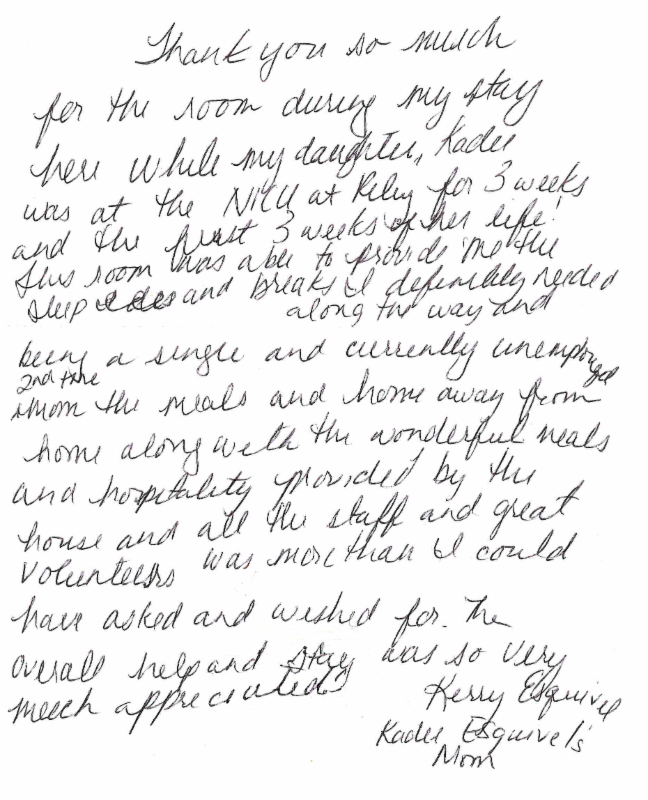 Thank you so much
for the room during my stay
here while my daughter, Kadee
was at the NICU at Riley for 3 weeks
and the first 3 weeks of her life!
This room was able to provide me the
sleep and breaks I definitely needed
along the way and
being a single and currently unemployed
2nd time
mom the meals and home away from
home along with the wonderful meals
and hospitality provided by the
house and all the staff and great
volunteers was more than I could
have asked and wished for. The
overall help and stay was so very
much appreciated
Kerry Esquivel
Kadee Esquivel's
Mom